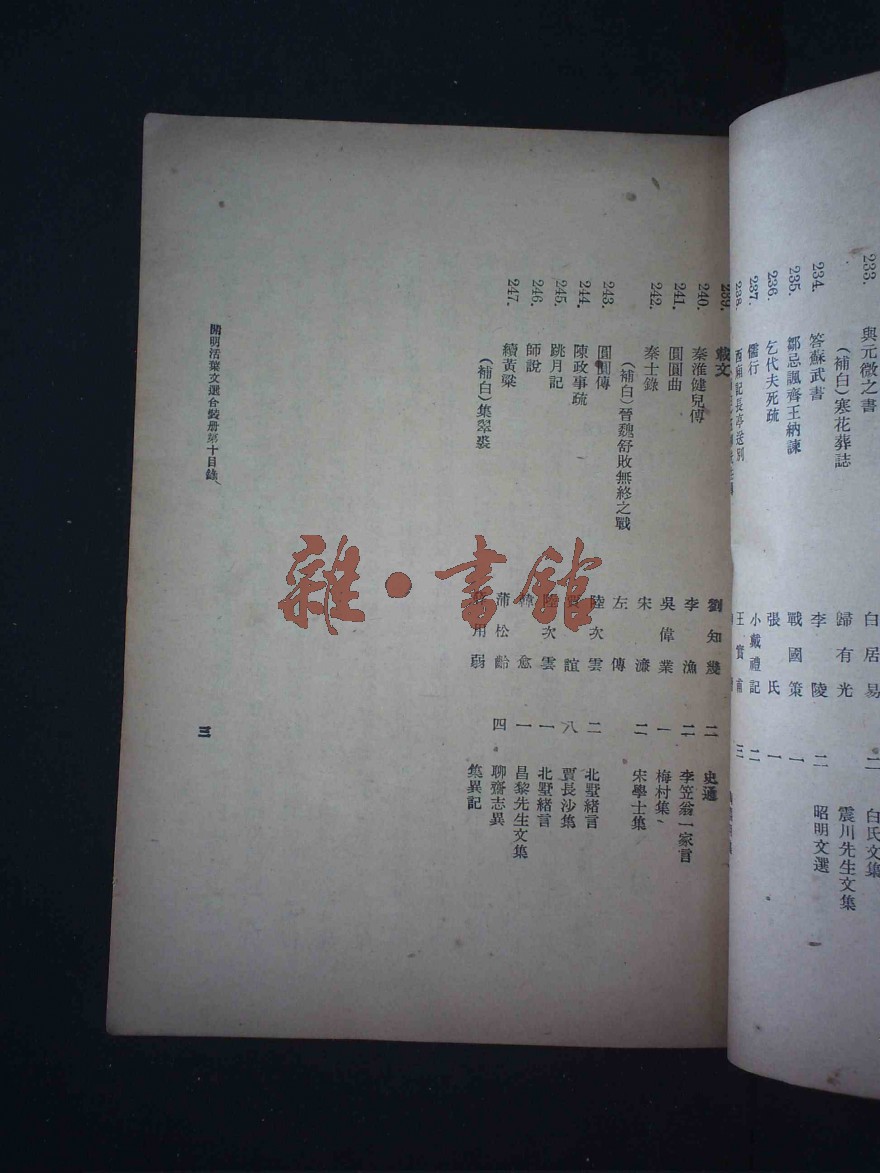 233. 與元微之書 白居易 二 白氏文集
(補白)寒花葬誌 歸有光 震川先生文集
234. 答蘇武書 李陵 二 昭明文選
235. 鄒忌諷齊王納諫 戰國策 一
236. 乞代夫死疏 張氏 一
237. 儒行 小戴禮記 二
238. 西廂記長亭送別 王實甫 三
239. 載文 劉知幾 二 史通
240. 秦淮健兒傳 李漁 二 李笠翁一家言
241. 圓圓曲 吳偉業 一 梅村集
242. 秦士錄 宋濂 二 宋學士集
(補白)晉魏舒敗無終之戰 左傳
243. 圓圓傳 陸次雲 二 北墅緒言
244. 陳政事疏 誼 八 賈長沙集
245. 跳月記 陸次雲 一 北墅緒言
246. 師說 愈 一 昌黎先生文集
247. 續黃粱 蒲松齡 四 聊齋志異
(補白)集翠裘 用弱 集異記
開明活葉文選合裝册第十目錄
三
雜·書館